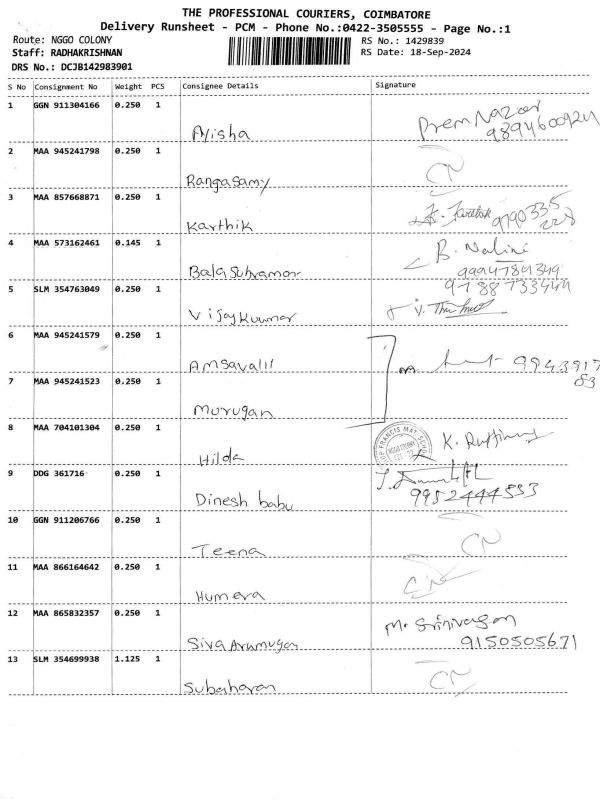 THE PROFESSIONAL COURIERS, COIMBATORE
Delivery Runsheet - PCM - Phone No.:0422-3505555 - Page No.:1
Route: NGGO COLONY RS No.: 1429839
Staff: RADHAKRISHNAN RS Date: 18-Sep-2024
DRS No.: DCJB142983901
S No Consignment No Weight PCS Consignee Details Signature
1 GGN 911304166 0.250 1
Ayisha Prem Nazar
9894600924
2 MAA 945241798 0.250 1
Rangasamy CN
3 MAA 857668871 0.250 1
Karthik 9790335
228
4 MAA 573162461 0.145 1
Balasubramar B. Nalini
9994784349
5 SLM 354763049 0.250 1 9788733444
Vijaykuumar
6 MAA 945241579 0.250 1
Amsavalli 9943917
83
7 MAA 945241523 0.250 1
Murugan
8 MAA 704101304 0.250 1
Hilda K.
9 DDG 361716 0.250 1
Dinesh babu 9952444553
10 GGN 911206766 0.250 1
Teena CN
11 MAA 866164642 0.250 1
Humera CN
12 MAA 865832357 0.250 1
Siva Arumugan Mr Srinivasan
9150505671
13 SLM 354699938 1.125 1
Subaharan CN